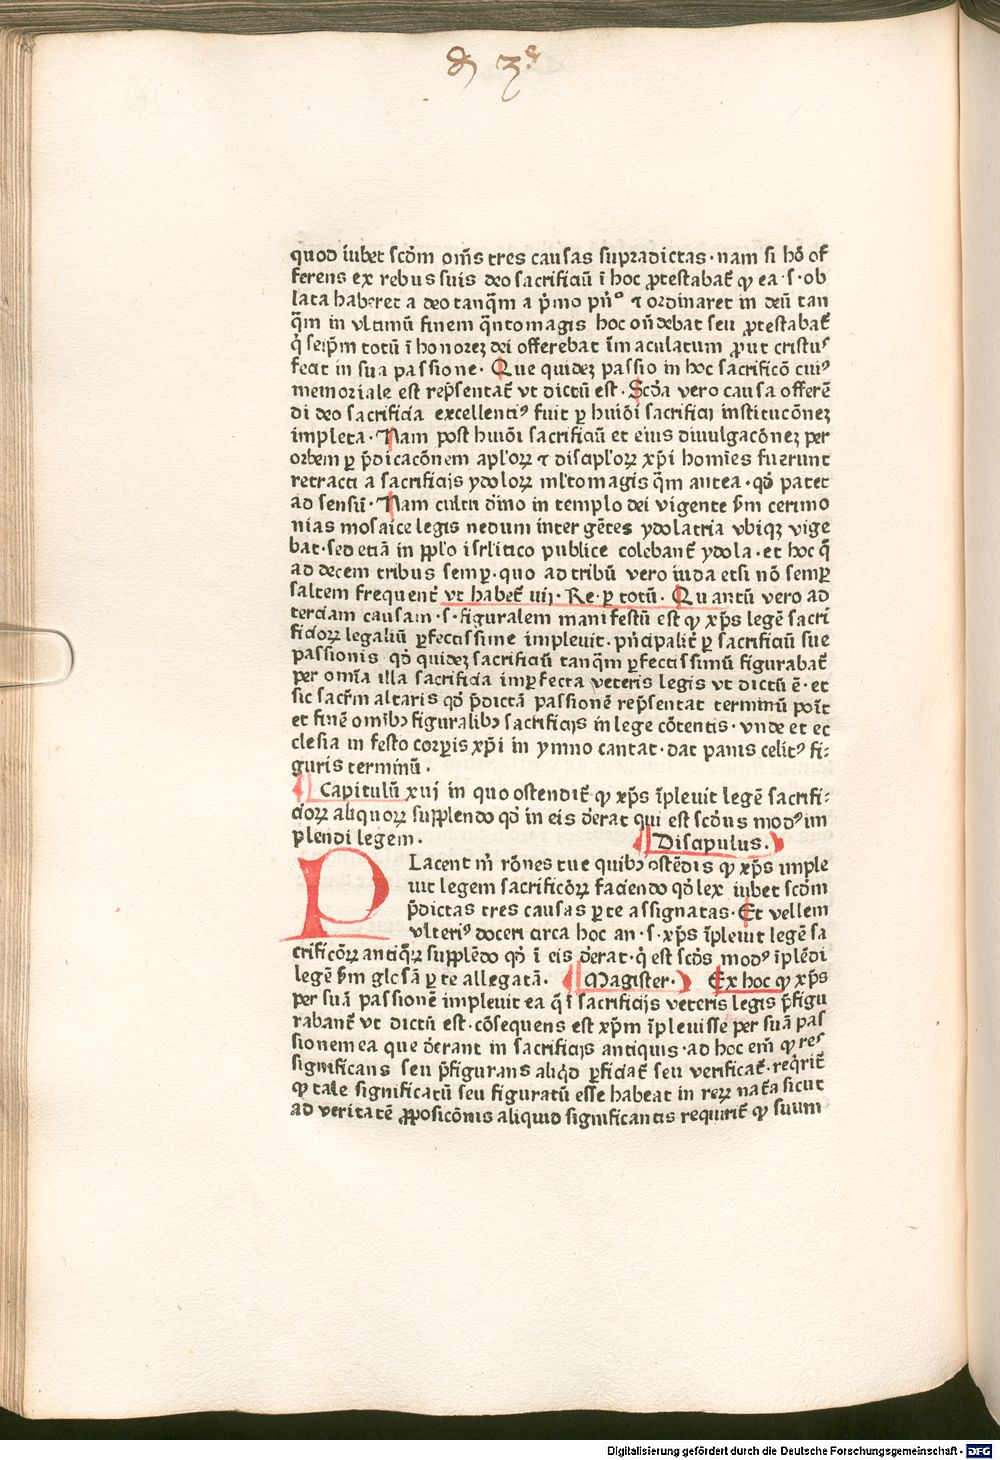 quod iubet scd̄m om̄s tres causas supradictas · nam si hō of
ferens ex rebus suis deo sacrificiū ī hoc ꝓtestabat᷑ ꝙ ea · s · ob
lata haberet a deo tanqm̄ a pͥmo pn̄ᵒ ⁊ ordinaret in deū tan
qm̄ in vltimū finem qn̄tomagis hoc on̄debat seu ꝓtestabat᷑
qͥ seip̄m totū ī honorez dei offerebat īmaculatum ꝓut cristuꝰ
fecit in sua passione · Que quidez passio in hoc sacrificō cuiꝰ
memoriale est rep̄sentat᷑ vt dictū est · Scd̄a vero causa offerē
di deo sacrificia excellentiꝰ fuit ꝑ huiōi sacrificij institucōnez
impleta · Nam post huiōi sacrificiū et eius diuulgacōnez per
orbem ꝑ p̄dicacōnem apl'oꝝ ⁊ discipl'oꝝ xp̄i homīes fuerunt
retracti a sacrificijs ydoloꝝ ml'tomagis qm̄ antea · qd̓ patet
ad sensū · Nam cultu diūo in templo dei vigente scd̄m cerimo
nias mosaice legis nedum inter gētes ydolatria vbiqꝫ vige
bat · sed etiā in pp̄lo isrl̄itico publice colebant᷑ ydola · et hoc q̄
ad decem tribus semꝑ · quo ad tribū vero iuda etsi nō semꝑ
saltem frequent᷑ vt habet᷑ iiij · Re · ꝑ totū · Quantū vero ad
terciam causam · s · figuralem manifestū est ꝙ xp̄s legē sacri
ficioꝝ legaliū ꝑfectissime impleuit · pn̄cipalit᷑ ꝑ sacrificiū sue
passionis qd̓ quidez sacrificiū tanqm̄ ꝑfectissimū figurabat᷑
per om̄ia illa sacrificia imꝑfecta veteris legis vt dictū ē · et
sic sacrm̄ altaris qd̓ p̄dictā passionē rep̄sentat terminū poīt
et finē omībꝫ figuralibꝫ sacrificijs in lege cōtentis · vnde et ec
clesia in festo corꝑis xp̄i in ymno cantat · dat panis celitꝰ fi⸗
guris terminū ·
Capitulū xvj in quo ostendit᷑ ꝙ xp̄s īpleuit legē sacrifi⸗
cioꝝ aliquoꝝ supplendo qd̓ in eis d̓erat qui est scd̓us modꝰ im
plendi legem ·
Discipulus ·
PLacent m̄ rōnes tue quibꝫ ostēdis ꝙ xp̄s imple
uit legem sacrificōꝝ faciendo qd̓ lex iubet scd̄m
p̄dictas tres causas ꝑ te assignatas · Et vellem
vlteriꝰ doceri circa hoc an · s · xp̄s īpleuit legē sa
crificōꝝ antiqͦꝝ supplēdo qd̓ ī eis d̓erat · qͥ est scd̓s modꝰ īplēdi
legē scd̄m glosā ꝑ te allegatā · Magister · Ex hoc ꝙ xp̄s
per suā passionē impleuit ea q̄ ī sacrificijs veteris legis p̄figu
rabant᷑ vt dictū est · cōsequens est xp̄m īpleuisse per suā pas
sionem ea que d̓erant in sacrificijs antiquis · ad hoc em̄ ꝙ res
significans seu p̄figurans aliqͥd ꝑficiat᷑ seu verificat᷑ · reqͥrit᷑
ꝙ tale significatū seu figuratū esse habeat in reꝝ nat̄a sicut
ad veritatē ꝓposicōnis aliquid significantis requirit᷑ ꝙ suum
Digitalisierung gefördert durch die Deutsche Forschungsgemeinschaft - DFG